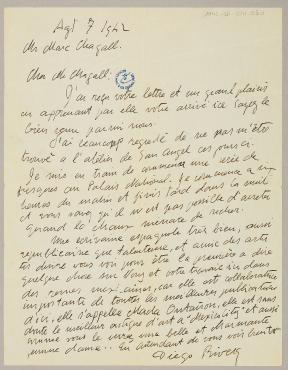 Agt 7 1942
Mr Marc Chagall.
Cher Mr Chagall:
J'ai reçu votre lettre et un grand plaisir
en apprenant par elle votre arrivé ici soyez le
bien venu parmi nous.
J'ai beaucoup regreté de ne pas m'être
trouvé a l'atelier de San Angel ces jours ci.
Je suis en train de une série de
fresques au Palais National. Je commence a
heures du matin et finis tard dans la nuit
et vous savez qu'il n'est pas possible d'arrêter
quand la chaux menace de secher.
Une ecrivaine espagnole très bien, aussi
republicaine que talentueuse, et amie des arts
desire vous voir pour être la première a dire
quelque chose sur vous et votre travail ici dans
des revues mexicaines, car elle est collaboratrice
importante de toutes les meilleures publications
d'ici, elle s'appelle Margarita Nelken, elle est sans
doute le meilleur critique d'art a Mexico et aussi
comme vous le verrez une belle et charmante
jeune dame. En attendant de vous voir bientôt
Diego Rivera